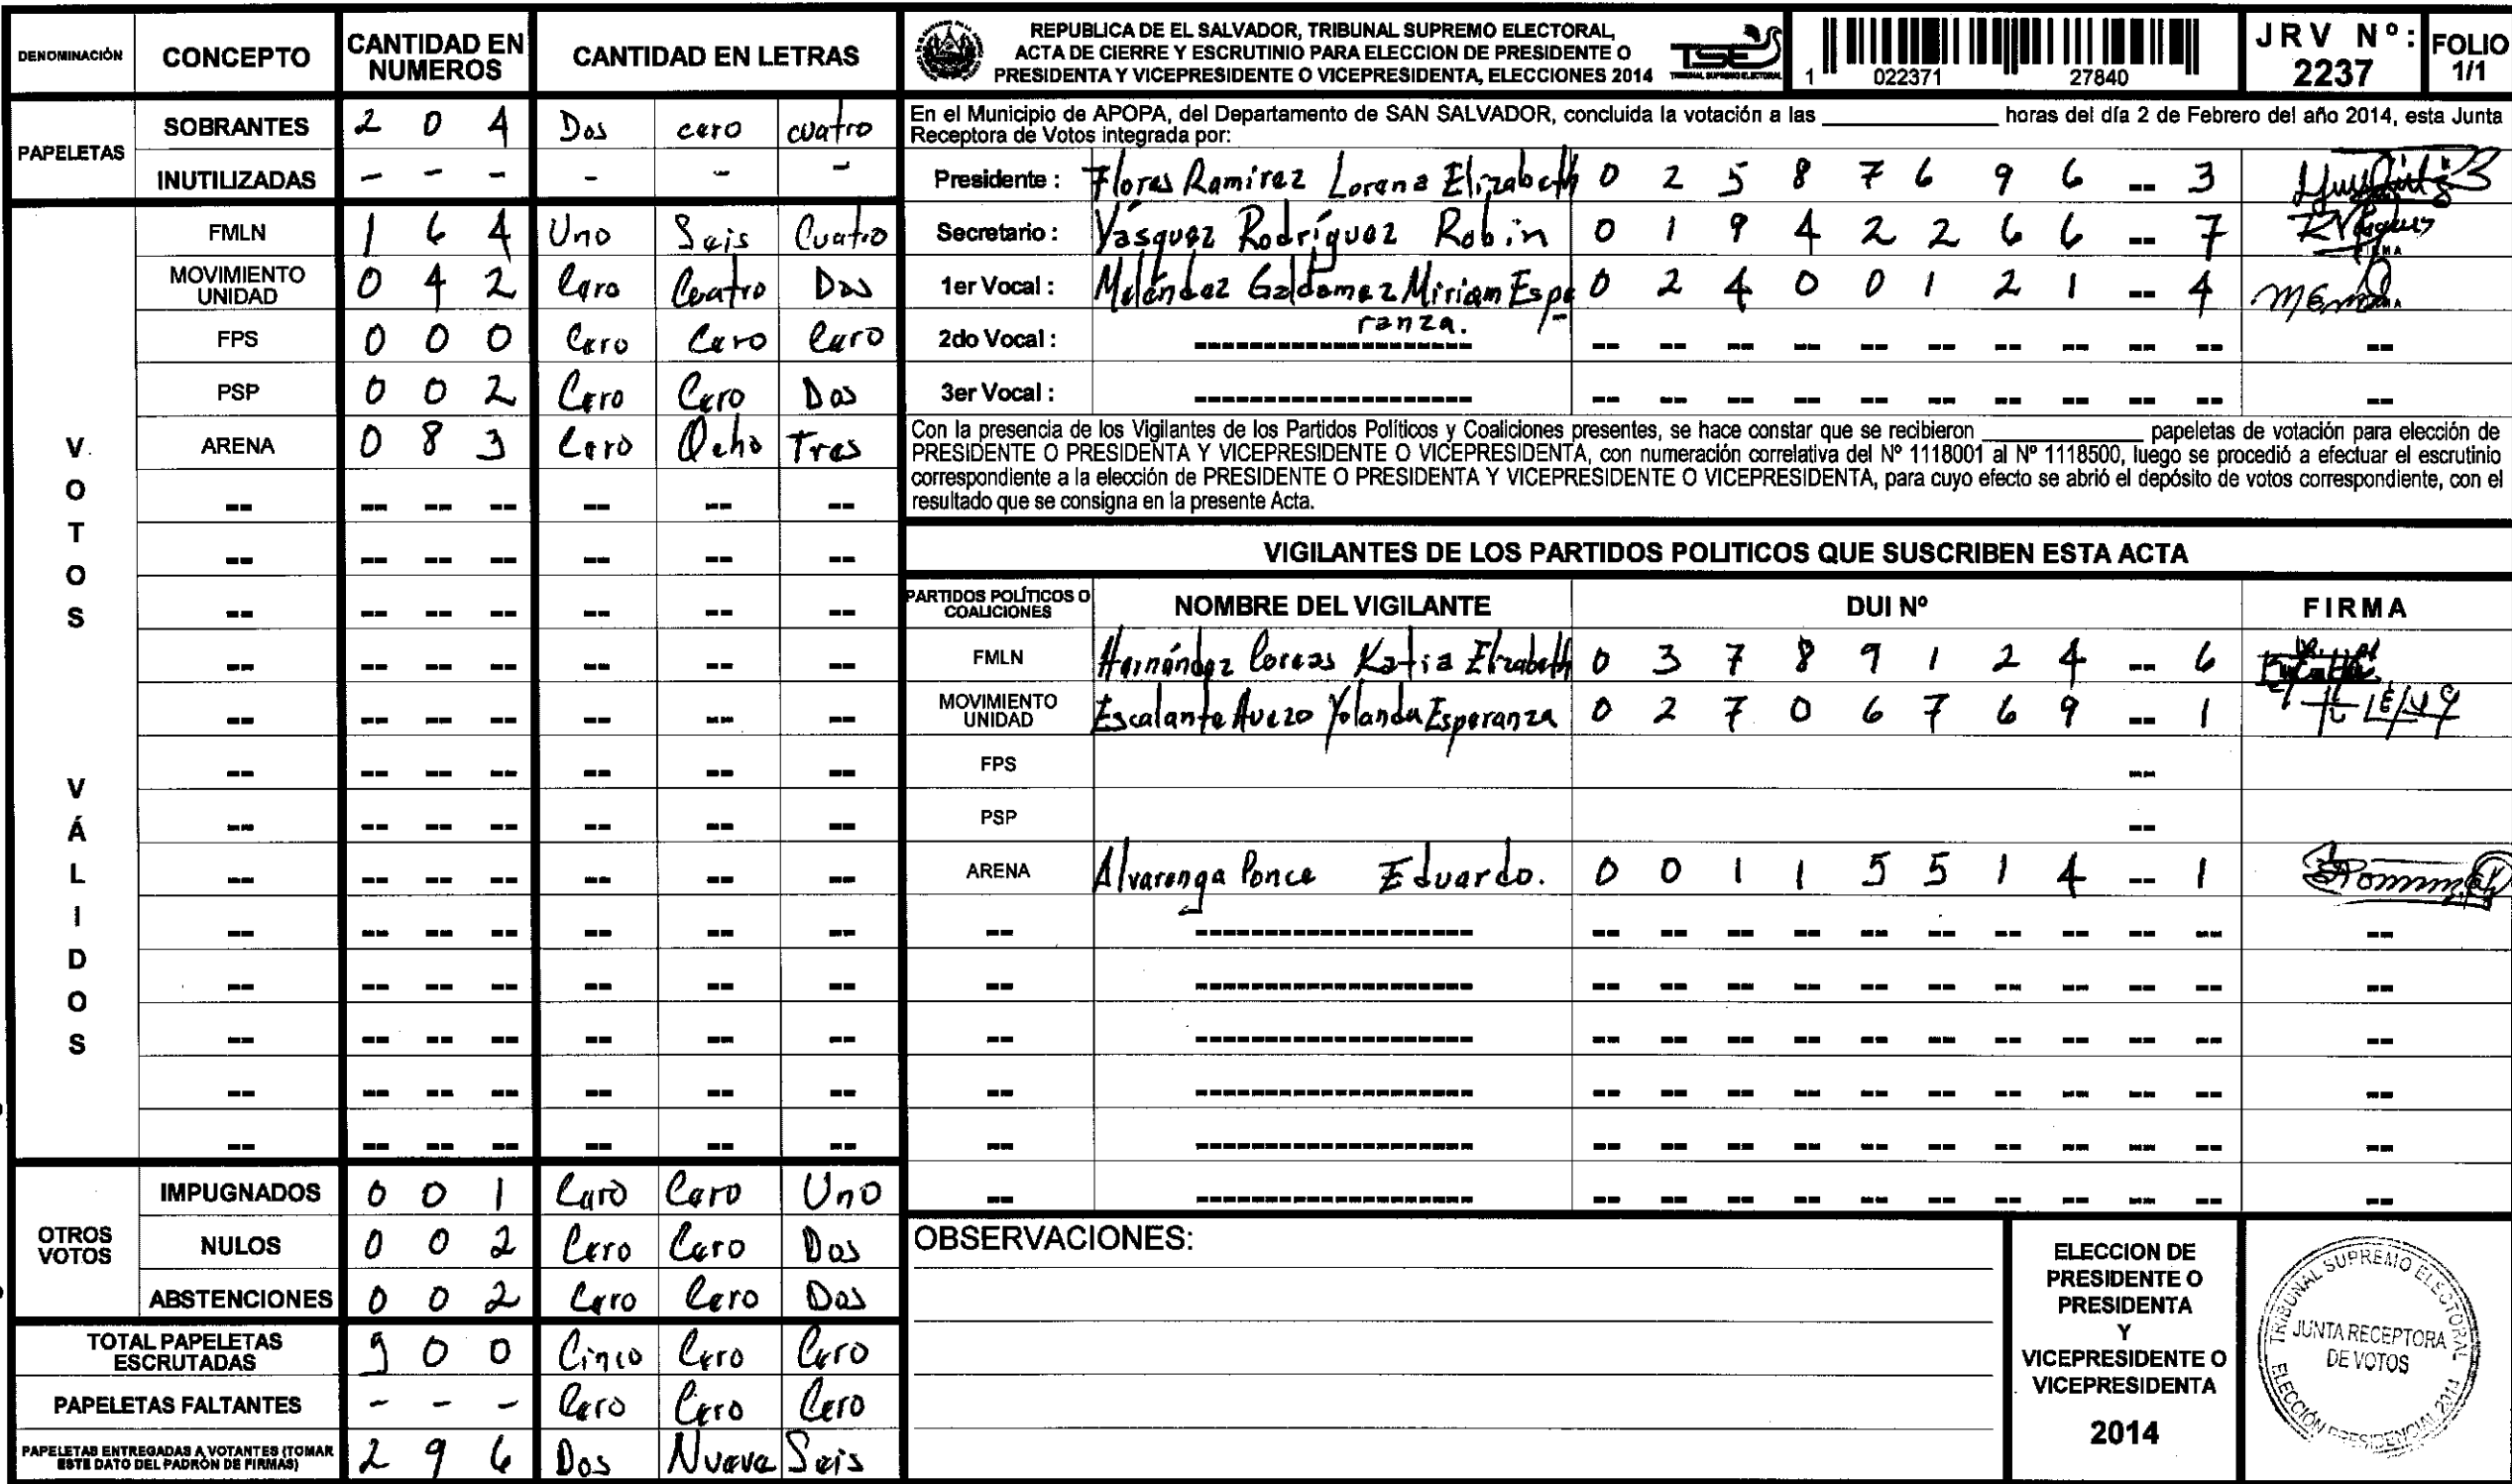 DENOMINACIÓN CONCEPTO CANTIDAD EN NUMEROS CANTIDAD EN LETRAS
PAPELETAS
SOBRANTES 2 0 4 Dos cero cuatro
INUTILIZADAS - - - - - -
VOTOS VÁLIDOS
FMLN 1 6 4 Uno Seis Cuatro
MOVIMIENTO UNIDAD 0 4 2 Cero Cuatro Dos
FPS 0 0 0 Cero Cero Cero
PSP 0 0 2 Cero Cero Dos
ARENA 0 8 3 Cero Ocho Tres
OTROS VOTOS
IMPUGNADOS 0 0 1 Cero Cero Uno
NULOS 0 0 2 Cero Cero Dos
ABSTENCIONES 0 0 2 Cero Cero Dos
TOTAL PAPELETAS ESCRUTADAS 5 0 0 Cinco Cero Cero
PAPELETAS FALTANTES - - - Cero Cero Cero
PAPELETAS ENTREGADAS A VOTANTES (TOMAR ESTE DATO DEL PADRÓN DE FIRMAS) 2 9 6 Dos Nueve Seis
REPUBLICA DE EL SALVADOR, TRIBUNAL SUPREMO ELECTORAL,
ACTA DE CIERRE Y ESCRUTINIO PARA ELECCION DE PRESIDENTE O
PRESIDENTA Y VICEPRESIDENTE O VICEPRESIDENTA, ELECCIONES 2014
TSE
TRIBUNAL SUPREMO ELECTORAL
1 022371 27840
JRV Nº: 2237
FOLIO 1/1
En el Municipio de APOPA, del Departamento de SAN SALVADOR, concluida la votación a las ____ horas del día 2 de Febrero del año 2014, esta Junta
Receptora de Votos integrada por:
Presidente : Flores Ramirez Lorena Elizabeth 0 2 5 8 7 6 9 6 -- 3
Secretario : Vásquez Rodríguez Robin 0 1 9 4 2 2 6 6 -- 7
1er Vocal : Meléndez Galdamez Miriam Espe 0 2 4 0 0 1 2 1 -- 4
ranza.
2do Vocal :
3er Vocal :
Con la presencia de los Vigilantes de los Partidos Políticos y Coaliciones presentes, se hace constar que se recibieron ____ papeletas de votación para elección de
PRESIDENTE O PRESIDENTA Y VICEPRESIDENTE O VICEPRESIDENTA, con numeración correlativa del Nº 1118001 al Nº 1118500, luego se procedió a efectuar el escrutinio
correspondiente a la elección de PRESIDENTE O PRESIDENTA Y VICEPRESIDENTE O VICEPRESIDENTA, para cuyo efecto se abrió el depósito de votos correspondiente, con el
resultado que se consigna en la presente Acta.
VIGILANTES DE LOS PARTIDOS POLITICOS QUE SUSCRIBEN ESTA ACTA
PARTIDOS POLÍTICOS O COALICIONES NOMBRE DEL VIGILANTE DUI Nº FIRMA
FMLN Hernández Katia Elizabeth 0 3 7 8 9 1 2 4 -- 6
MOVIMIENTO UNIDAD Escalante Yolanda Esperanza 0 2 7 0 6 7 6 9 -- 1
FPS --
PSP --
ARENA Alvarenga Ponce Eduardo. 0 0 1 1 5 5 1 4 -- 1
OBSERVACIONES:
ELECCION DE
PRESIDENTE O
PRESIDENTA
Y
VICEPRESIDENTE O
VICEPRESIDENTA
2014
TRIBUNAL SUPREMO ELECTORAL
JUNTA RECEPTORA
DE VOTOS
ELECCIÓN PRESIDENCIAL 2014